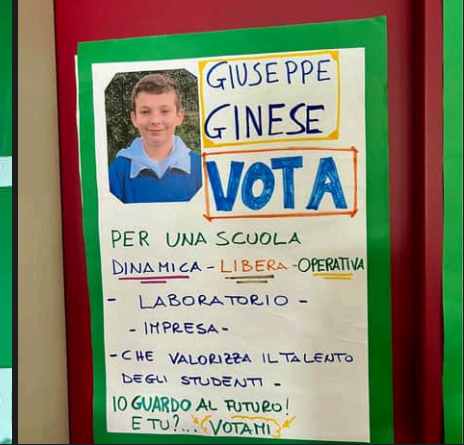 GIUSEPPE
GINESE
VOTA
PER UNA SCUOLA
DINAMICA - LIBERA - OPERATIVA
- LABORATORIO -
- IMPRESA -
- CHE VALORIZZA IL TALENTO
DEGLI STUDENTI -
IO GUARDO AL FUTURO!
E TU?... VOTAMI